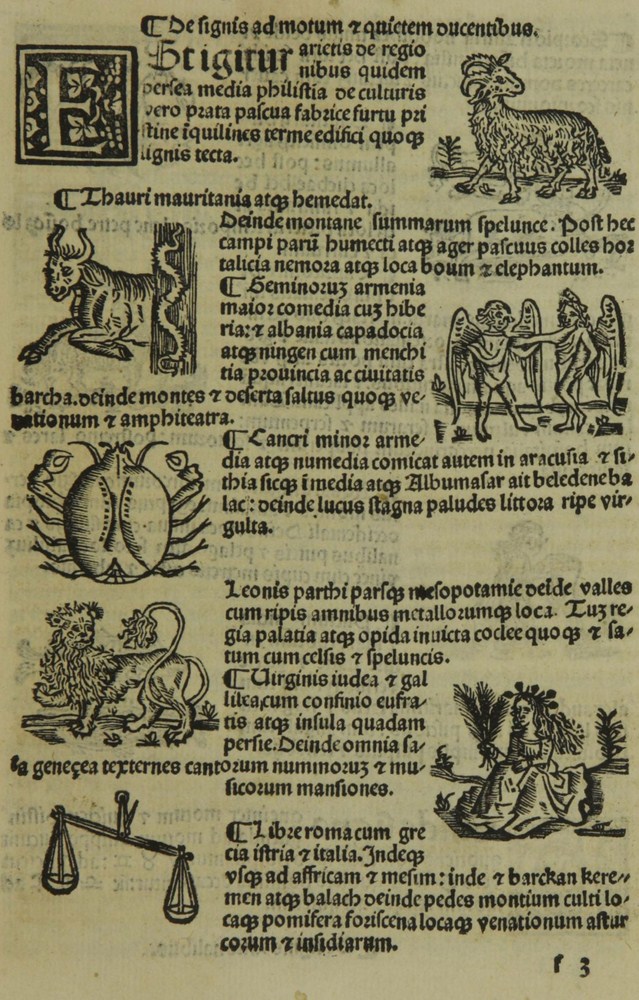 ¶ De signis ad motum ⁊ quietem ducentibus.
ESt igitur arietis de regio
nibus quidem
persea media philistia de culturis
vero prata pascua fabrice furtu pri
stine īquilines terme edifici quoqꝫ
lignis tecta.
¶ Thauri mauritania atqꝫ hemedat.
Deinde montane summarum spelunce. Post hec
campi parū humecti atqꝫ ager pascuus colles hor
talicia nemora atqꝫ loca boum ⁊ elephantum.
¶ Geminoruꝫ armenia
maior comedia cuꝫ hibe
ria: ⁊ albania capadocia
atqꝫ ningen cum menchi
tia prouincia ac ciuitatis
barcha. deinde montes ⁊ deserta saltus quoqꝫ ve-
nationum ⁊ amphiteatra.
¶ Cancri minor arme-
dia atqꝫ numedia comicat autem in aracusia ⁊ si-
thia sicqꝫ īmedia atqꝫ Albumasar ait beledene ba
lac: deinde lucus stagna paludes littora ripe vir-
gulta.
Leonis parthi parsqꝫ mesopotamie deīde valles
cum ripis amnibus metallorumqꝫ loca. Tuꝫ re-
gia palatia atqꝫ opida inuicta coclee quoqꝫ ⁊ sa-
tum cum celsis ⁊ speluncis.
¶ Uirginis iudea ⁊ gal
lilea, cum confinio eufra-
tis atqꝫ insula quadam
persie. Deinde omnia sa-
la geneçea texternes cantorum numinoruꝫ ⁊ mu-
sicorum mansiones.
¶ Libre roma cum gre
cia istria ⁊ italia. Indeqꝫ
vsqꝫ ad affricam ⁊ mesim: inde ⁊ barckan kere-
men atqꝫ balach deinde pedes montium culti lo-
caqꝫ pomifera foriscena locaqꝫ venationum astur
corum ⁊ insidiarum.
f 3